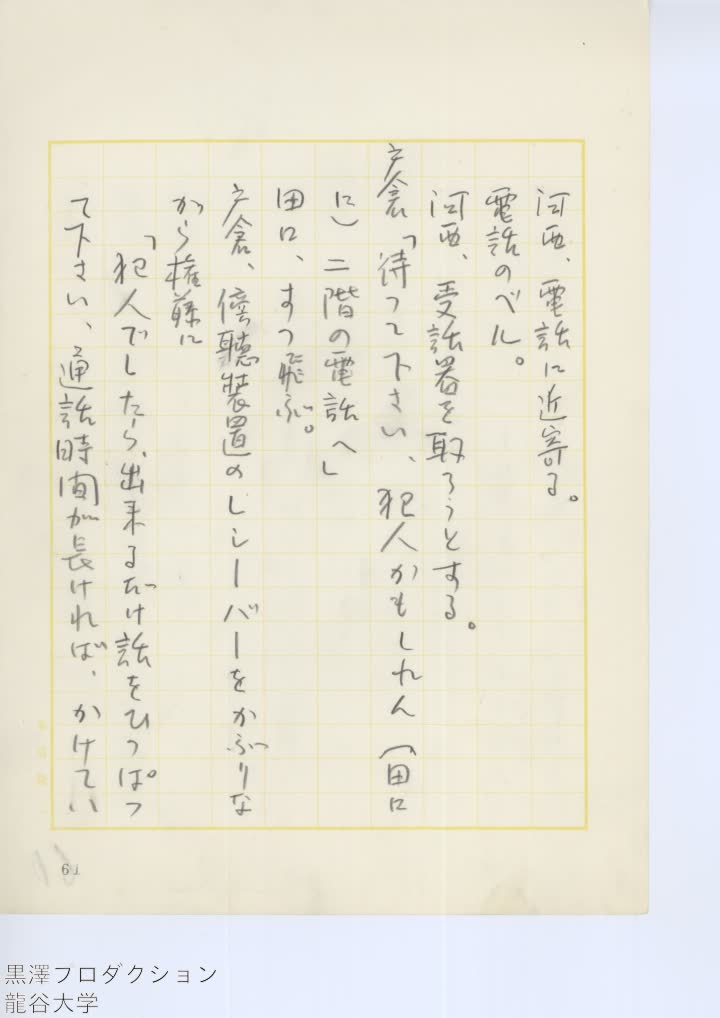 河西、電話に近寄る。
電話のベル。
河西、受話器を取ろうとする。
戸倉「待つて下さい、犯人かもしれん（田口
に）二階の電話へ」
田口、すつ飛ぶ。
戸倉、傍聴装置のレシーバーをかぶりな
がら権藤に
「犯人でしたら、出来るだけ話をひつぱつ
て下さい、通話時間が長ければ、かけてい
61
黒澤プロダクション
龍谷大学